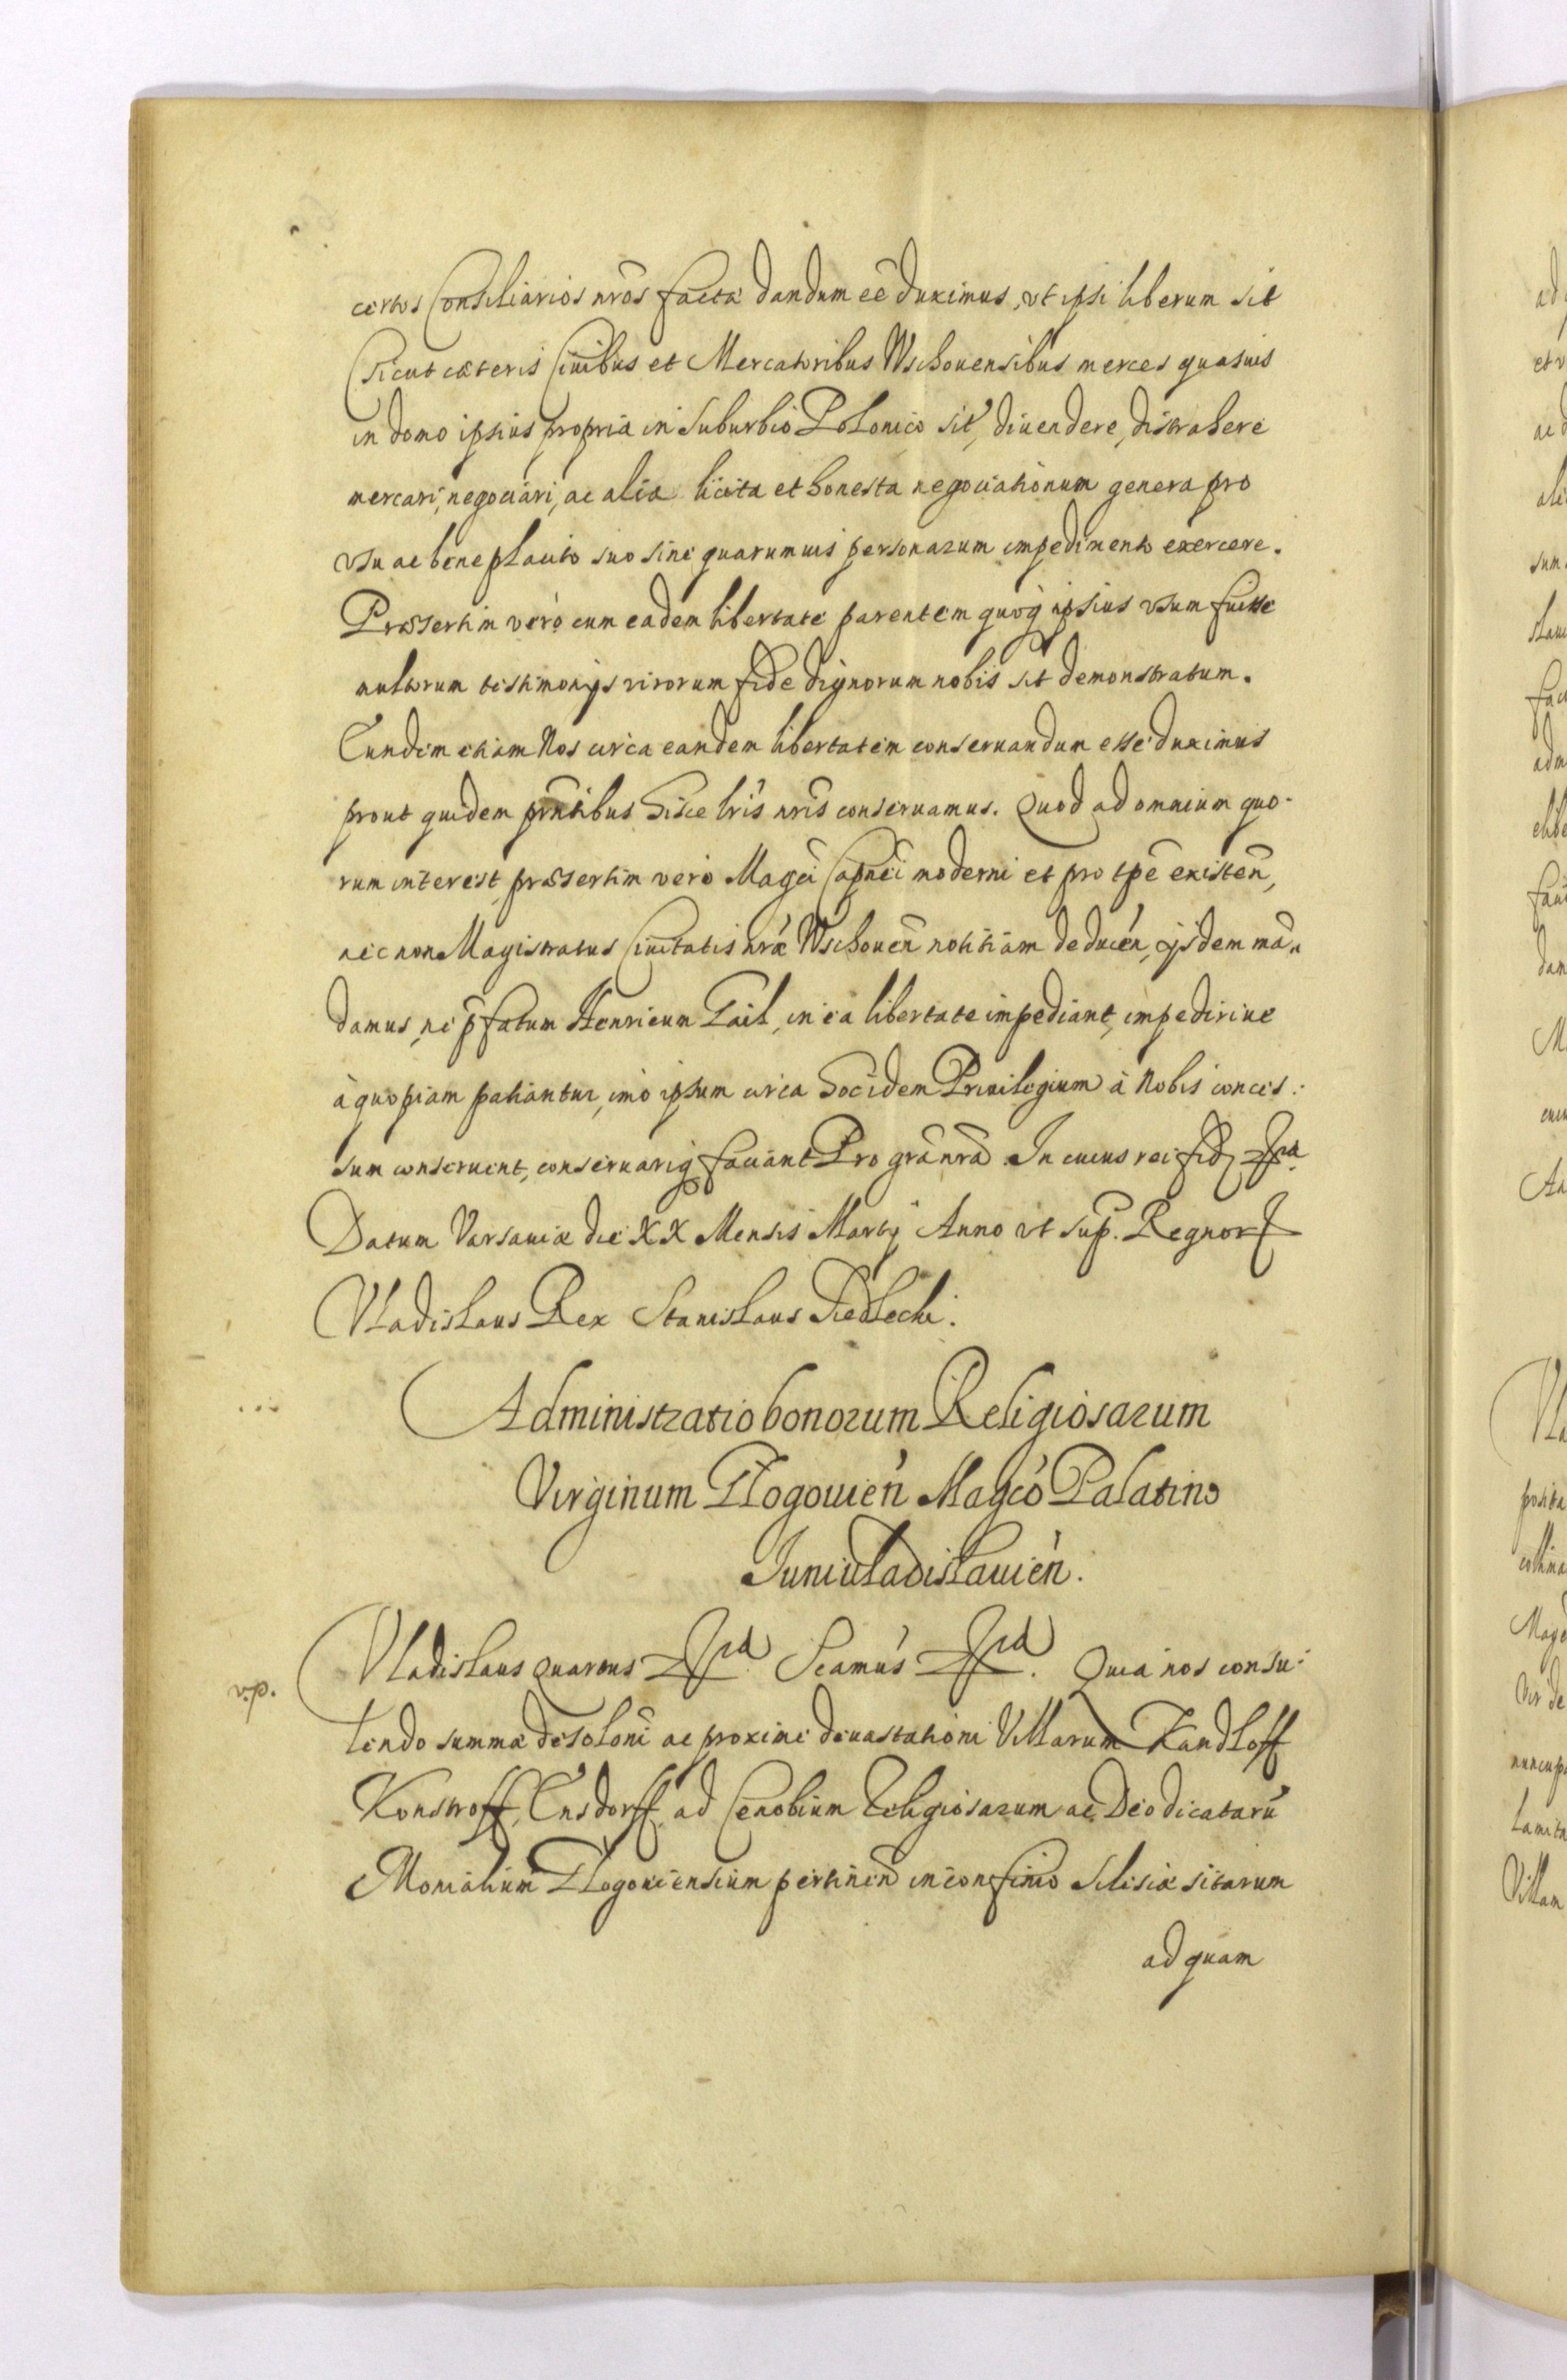 certos Consiliarios nr̃os facta dandum eẽ duximus, vt ipsi liberum sit
sicut cæteris Ciuibus et Mercatoribus Wschouensibus merces quasuis
in domo ipsius propria in Suburbio Polonico sit, diuendere, distrahere
mercari, negociari, ac alia licita et honesta negociationum genera pro
vsu ac beneplacito suo sine quarumuis personarum impedimento exercere.
Præsertim vero cum eadem libertate parentem quoq ipsius vsum fuisse
multorum testimonijs virorum fide dignorum nobis sit demonstratum.
Eundem etiam Nos circa eandem libertatem conseruandum esse duximus
prout quidem pr̃ntibus hisce lr̃is nr̃is conseruamus. Quod ad omnium quo-
rum interest, præsertim vero Magci Capnei moderni et pro tp̃e existeñ,
nec non Magistratus Ciuitatis nr̃æ Wschoueñ notitiam deduceñ, ijsdem man-
damus, ne p̃fatum Henricum Tail, in ea libertate impediant, impediriue
à quopiam patiantur, imo ipsum circa hocidem Priuilegium à Nobis conces:
sum conseruent, conseruariq faciant Pro gr̃a nr̃a. In cuius rei fid
Datum Varsauiæ die XX Mensis Martij Anno vt sup. Regnor
Vladislaus Rex Stanislaus Siedlecki.
Administratio bonorum Religiosarum
Virginum Glogouień Magco Palatino
Juniuladislauień.
v.p.
Vladislaus Quartus Scamus Quia nos consu-
lendo summæ desoloni ac proximè deuastationi Villarum Kandloff
Konstroff, Ensdorff, ad Cenobium Religiosarum ac Deo dicatarũ
Monialium Glogouiensium pertineñ in confinio Silisiæ sitarum
ad quam